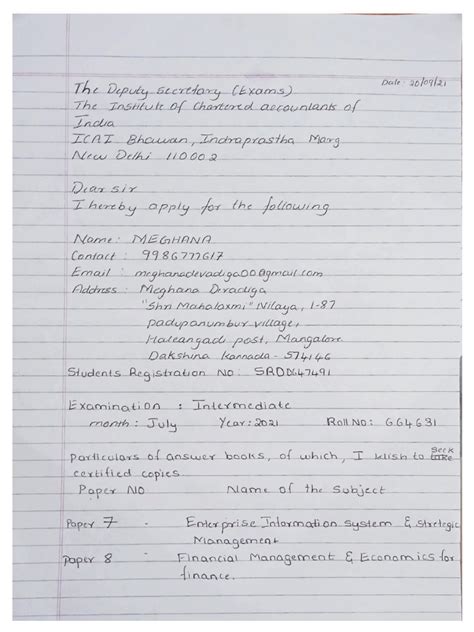 Date: 20/09/21
The Deputy Secretary (Exams)
The Institute Of Chartered accountants of
India
ICAI Bhawan, Indraprastha Marg
New Delhi 110002
Dear sir
I hereby apply for the following
Name: MEGHANA
Contact : 9986777617
Email : meghanadevadiga00@gmail.com
Address : Meghana Devadiga
"Shri Mahalaxmi" Nilaya, 1-87
padupanumbur village,
Haleangadi post, Mangalore
Dakshina Kannada - 574146
Students Registration No: SRO0647491
Examination : Intermediate
month : July Year: 2021 Roll No: 664631
Particulars of answer books, of which, I wish to seek
certified copies
Paper No Name of the Subject
Paper 7 - Enterprise Information system & Strategic
Management
Paper 8 - Financial Management & Economics for
finance.